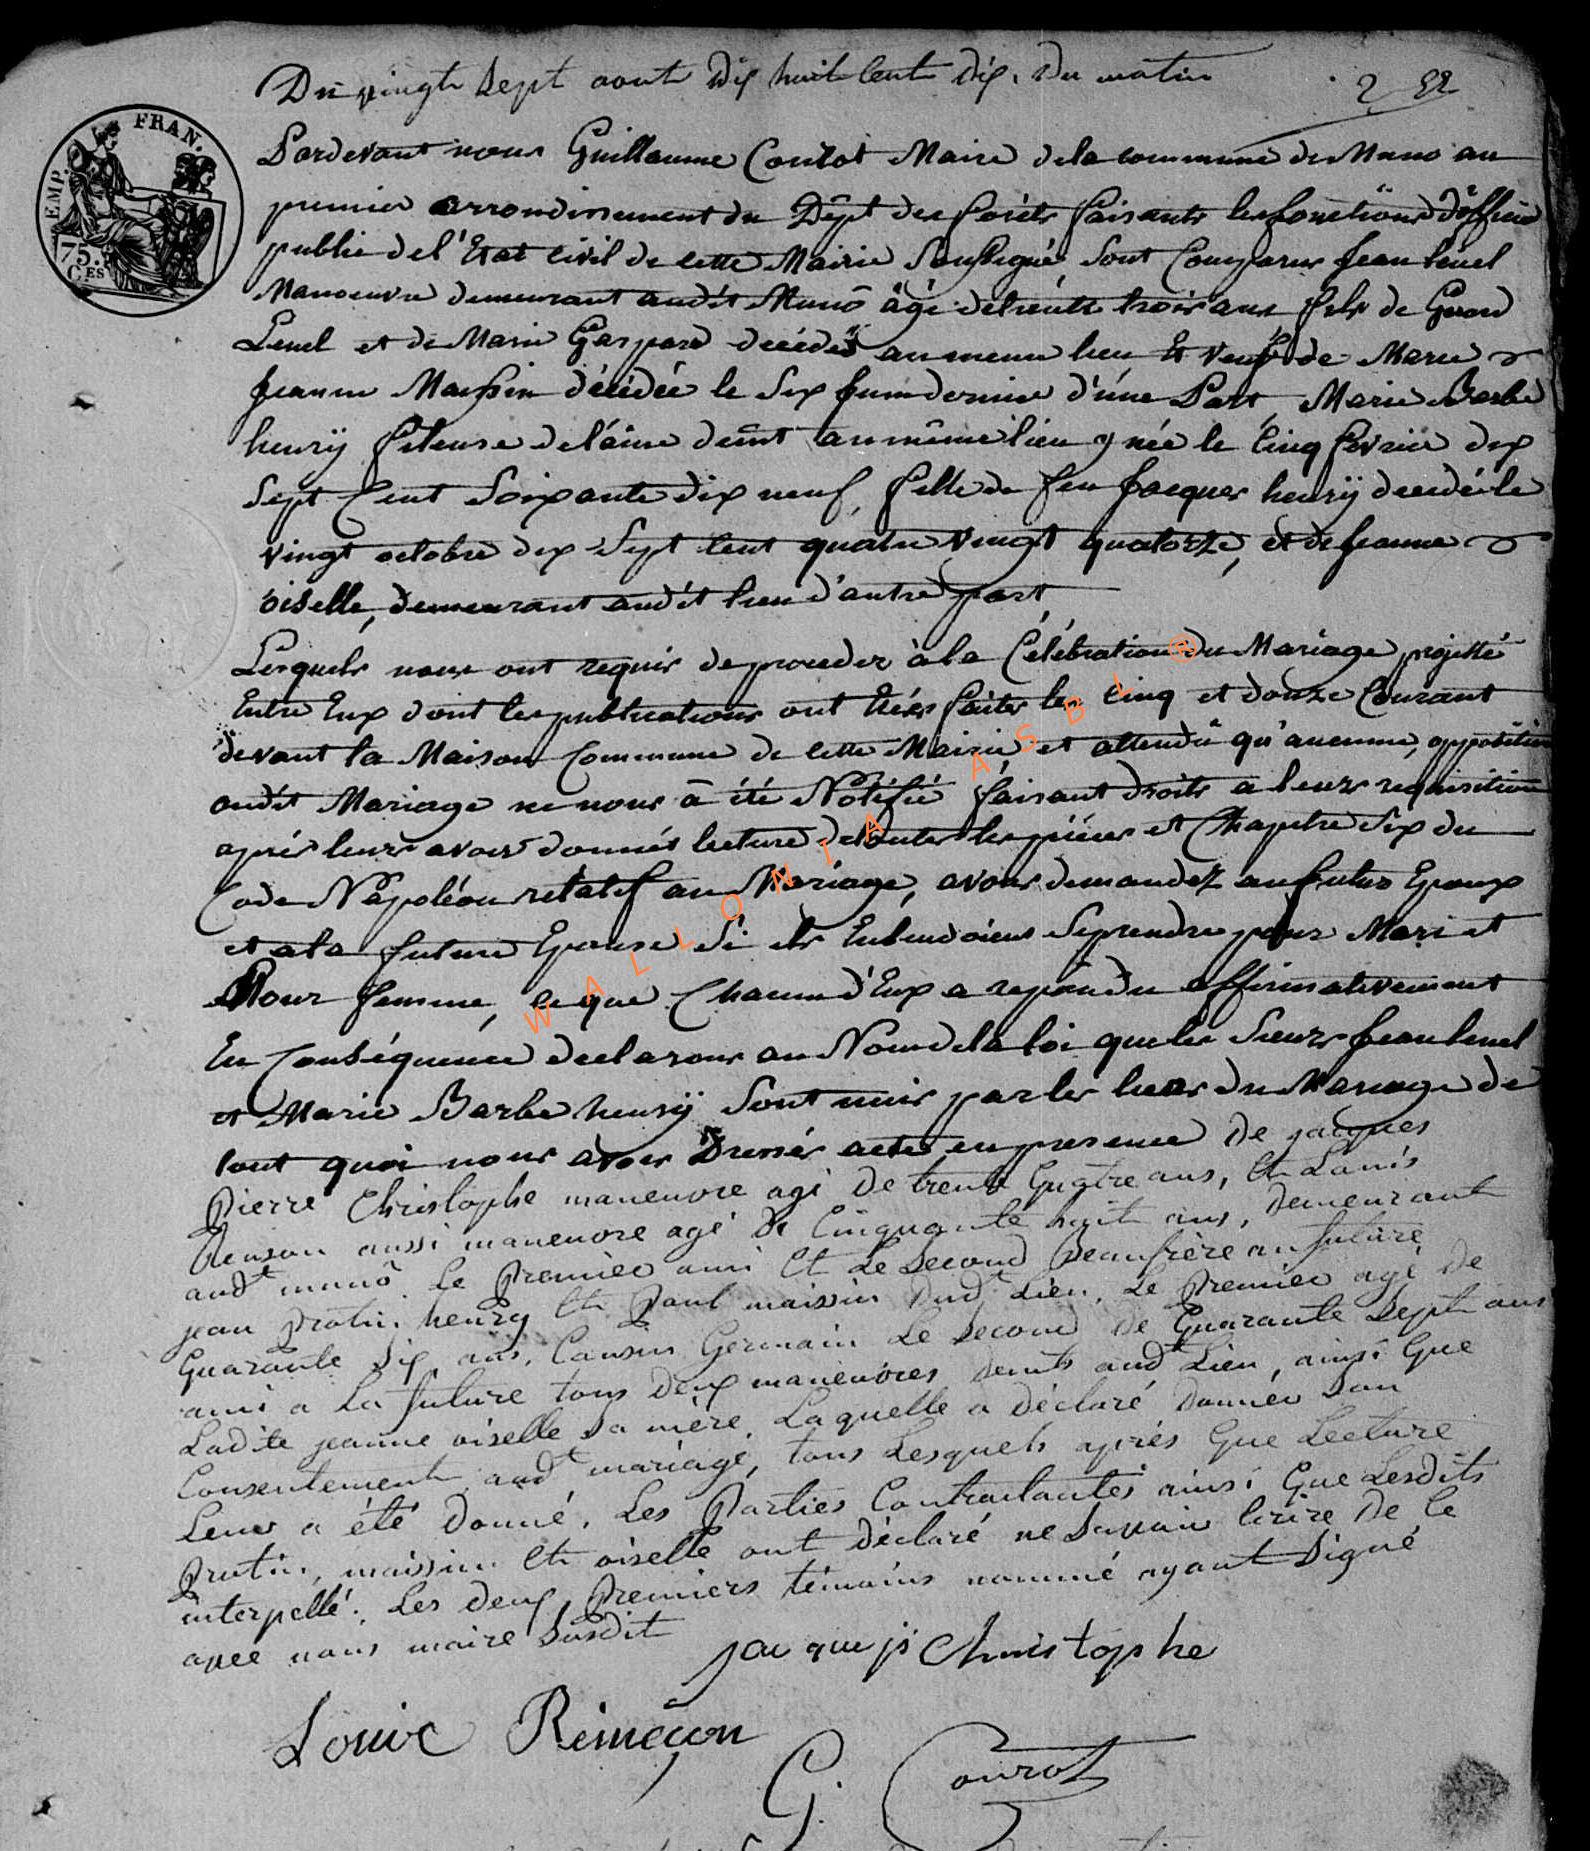 Du vingt Sept aout dix huit Cent dix. Du matin
2 22
FRAN.
EMP.
75.
CES
Pardevant nous Guillaume Courot Maire de la commune de Muno au
premier arrondissement du Dépt des forêts faisants les fonctions d'officier
public de l'Etat Civil de cette Mairie Soussigné, Sont Comparus Jean Lenel
Manoeuvre demeurant audit Muno âgé de trente trois ans fils de Gerard
Lenel et de Marie Gaspard décédés au meme lieu Et veuf de Marie
Jeanne Maissin décédée le Six Juin dernier d'une Part, Marie Barbe
henrÿ fileuse de laine demt au même lieu y née le Cinq fevrier dix
Sept Cent Soixante dix neuf, fille de feu Jacques henrÿ decedé le
vingt octobre dix Sept Cent quatre vingt quatorze, et de Jeanne
oiselle, demeurant audit lieu d'autre part,
Lesquels nous ont requis de proceder à la Célébration du Mariage projetté
Entre Eux dont les publications ont étées faites les Cinq et douze Courant
devant la Maison Commune de cette Mairie, et attendû qu'aucunne opposition
audit Mariage ne nous à été Notifié faisant droits a leurs requisition
après leurs avoir donnés lecture de toutes les pièces et Chapitre Six du
Code Napoléon relatif au Mariage, avons demandez au futur Epoux
et a la future Epouse Si ils Entendoient Se prendre pour Mari et
Pour femme, ce que Chacun d'Eux a repondu affirmativement
En Conséquence declarons au Nom de la loi que les Sieurs Jean Lenel
et Marie Barbe henrÿ Sont unis par les liens du Mariage de
tout quoi nous avons Dressés acte en presence De jacques
Pierre Christophe maneuvre agé De trente Quatre ans, Et Louis
aussi maneuvre agé De Cinquante huit ans, Demeurant
audt munô. Le Premier ami Et Le Second Beaufrère au future
jean Protin henry Et Paul maissin Dudt Lieu. Le Premier agé De
Quarante Six ans, Cousin Germain Le Second De Quarante Sept ans
ami a La future tous Deux maneuvres Demts audt Lieu, ainsi Que
Ladite jeanne oiselle Sa mère. Laquelle a déclaré Donner Son
Consentement audt mariage, tous Lesquels après Que Lecture
Leur a été Donné, Les Parties Contractantes ainsi Que Lesdits
Protin, maissin Et oiselle ont Déclaré ne Savoir Ecrire De Ce
interpellé. Les Deux Premiers témoins nommé ayant Signé
avec nous maire Susdit
jacque ji Christophe
Louis Remeçon
G. Courot
WALLONIA ASBL ®